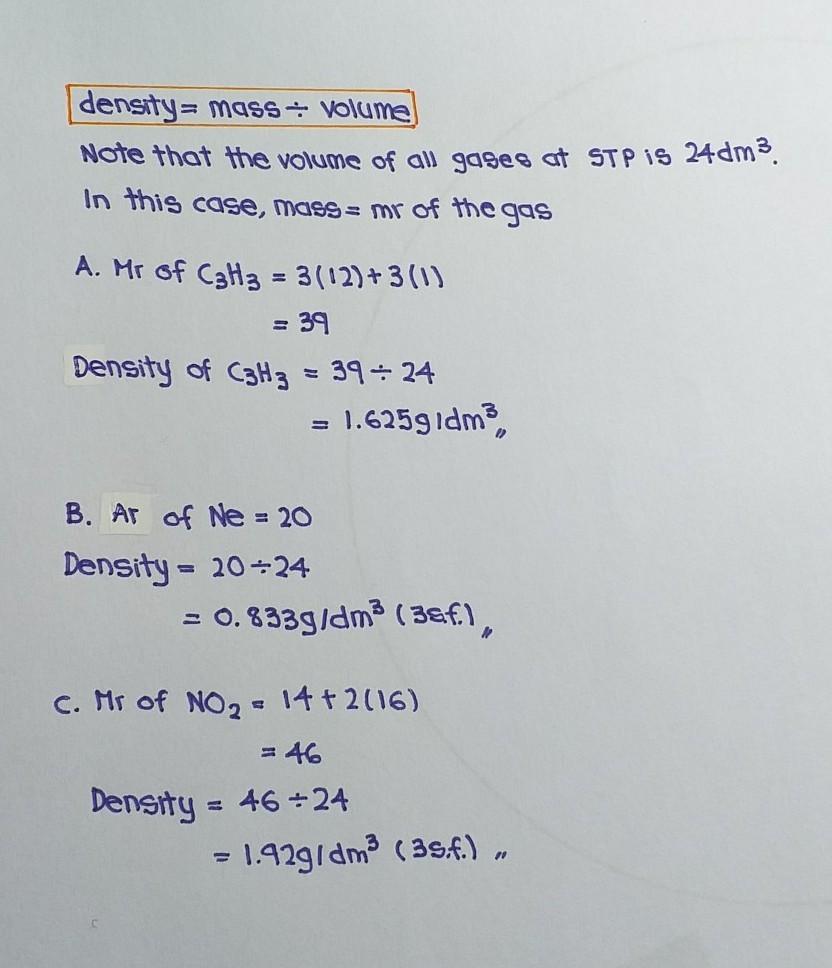 density = mass ÷ volume
Note that the volume of all gases at STP is 24dm³.
In this case, mass = mr of the gas
A. Mr of C₃H₃ = 3(12) + 3(1)
= 39
Density of C₃H₃ = 39 ÷ 24
= 1.625g/dm³,,
B. Ar of Ne = 20
Density = 20 ÷ 24
= 0.833g/dm³ (3s.f.),,
C. Mr of NO₂ = 14 + 2(16)
= 46
Density = 46 ÷ 24
= 1.92g/dm³ (3s.f.),,